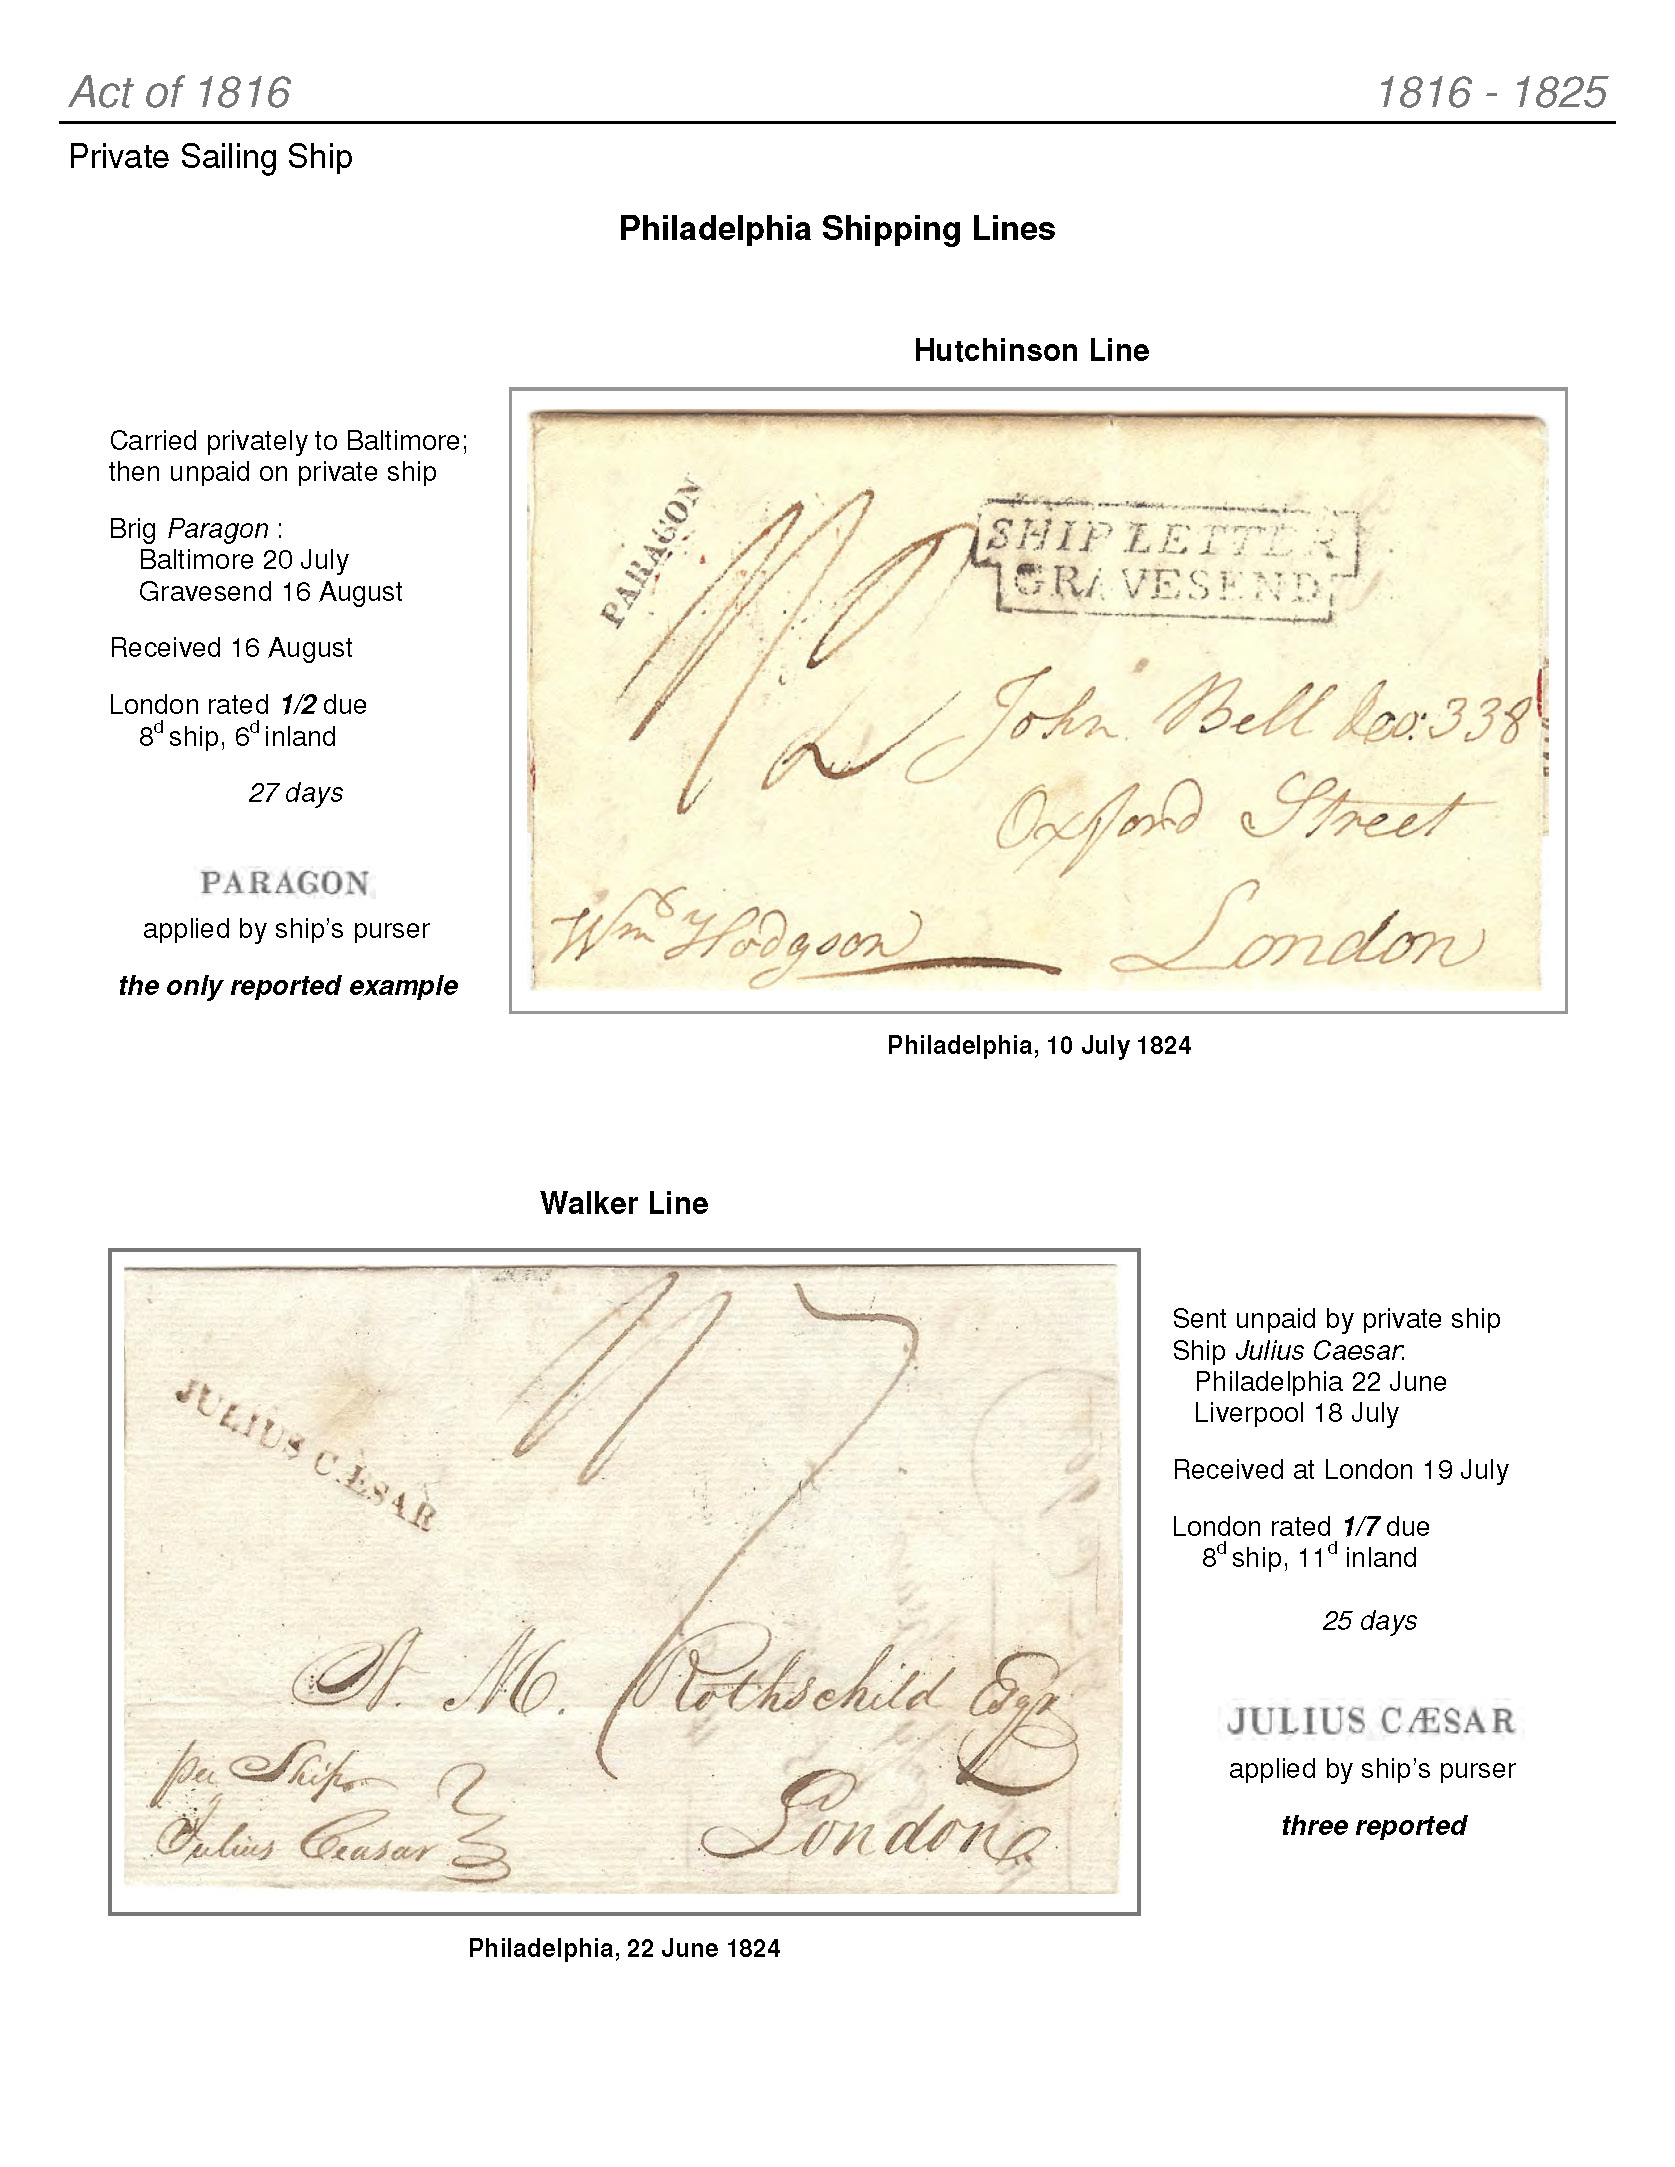 Act of 1816
1816 - 1825
Private Sailing Ship
Philadelphia Shipping Lines
Hutchinson Line
Carried privately to Baltimore;
then unpaid on private ship
Brig Paragon :
Baltimore 20 July
Gravesend 16 August
Received 16 August
London rated 1/2 due
8d ship, 6d inland
27 days
PARAGON
applied by ship's purser
the only reported example
PARAGON
SHIP LETTER
GRAVESEND
John Bell &co: 338
Oxford Street
London
Wm Hodgson
Philadelphia, 10 July 1824
Walker Line
JULIUS CÆSAR
N. M. Rothschild Esqr
per Ship
Julius Ceasar
London
Philadelphia, 22 June 1824
Sent unpaid by private ship
Ship Julius Caesar:
Philadelphia 22 June
Liverpool 18 July
Received at London 19 July
London rated 1/7 due
8d ship, 11d inland
25 days
JULIUS CÆSAR
applied by ship's purser
three reported